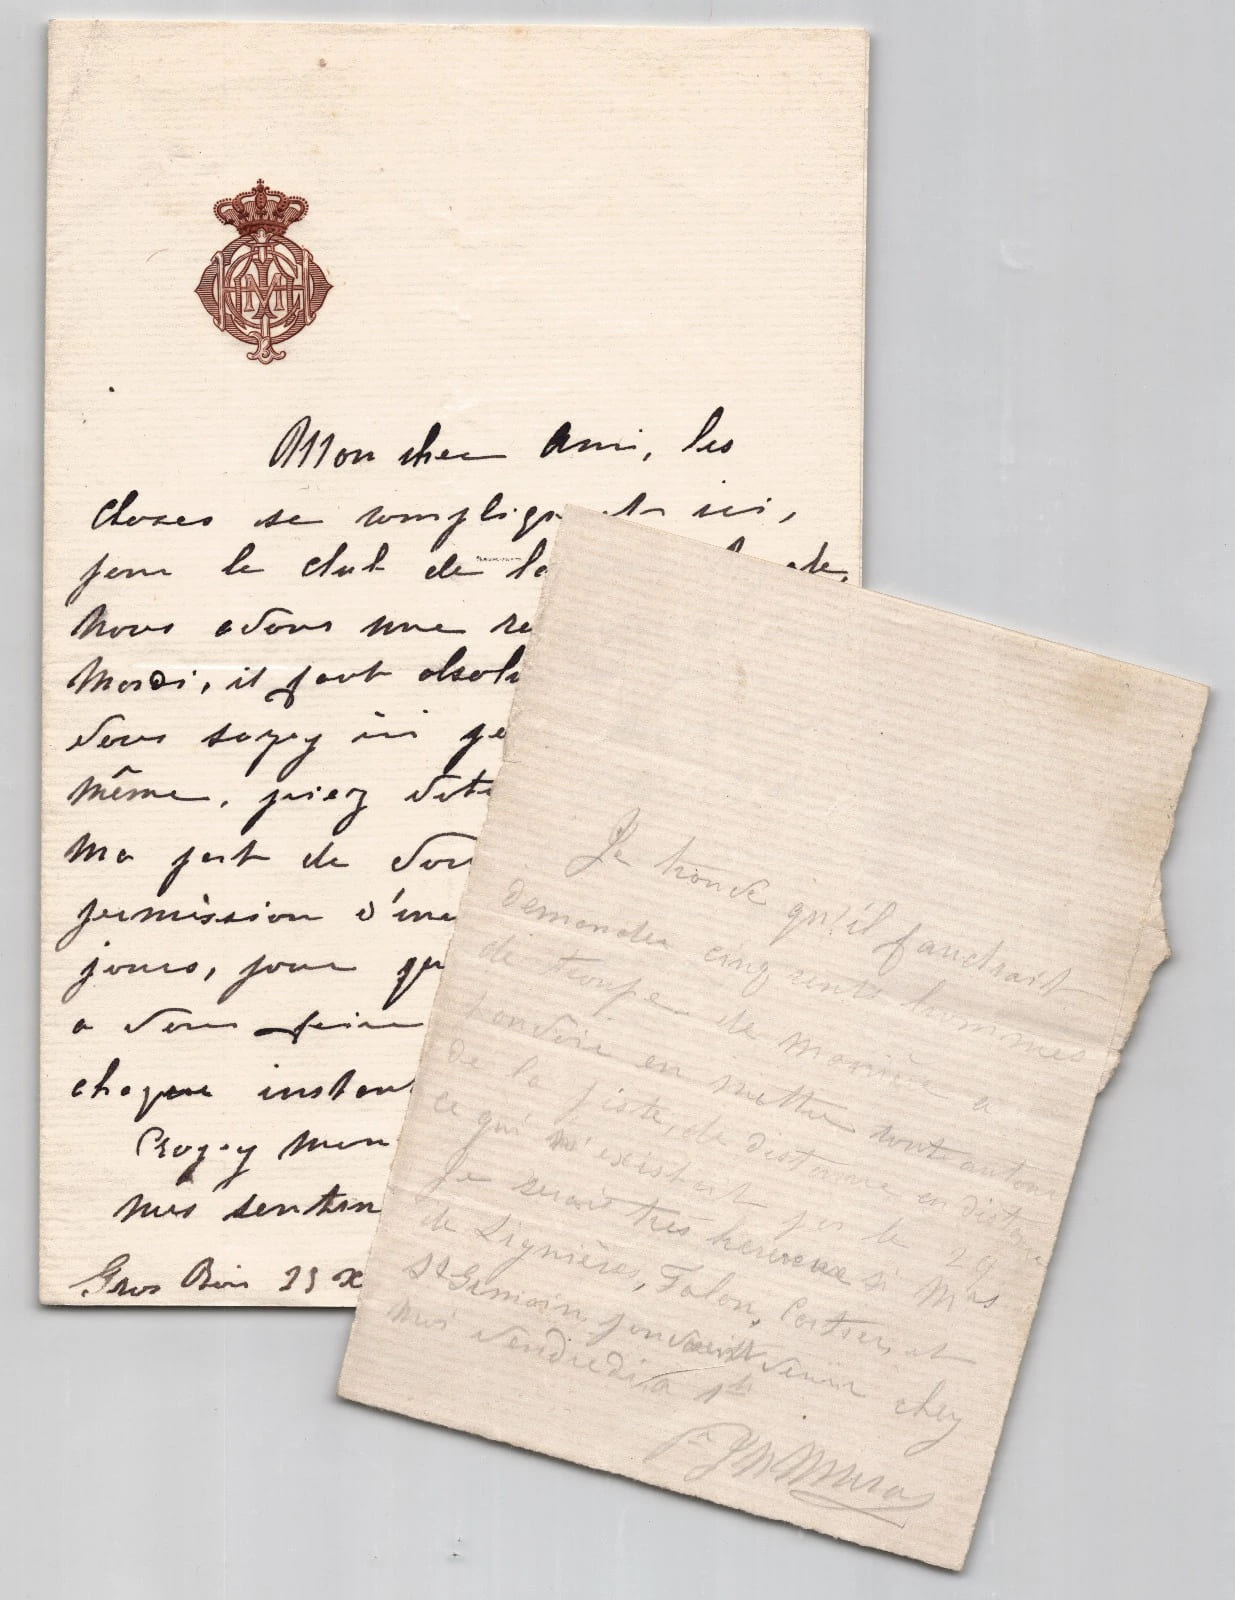 Mon cher Ami, les
choses se complique ici,
pour le club de la
Nous avons une re
Mardi, il faut absolu
vous soyez ici
même, priez
ma part de vou
permission d'une
jours, pour
a vous faire
chaque instant
Croyez mon
mes sentim
Gros Bois 23 X
Je trouve qu'il faudrait
demander cinquante hommes
de troupe de marine a
pouvoir en mettre tout autour
de la piste, de distance en distance
ce qui n'existait pas le 29
Je serais très hereuse si Mrs
de Lignière, Talon, Cartier, et
St Germain, pouvait venir chez
moi Vendredi a 1h
Pce J N Murat